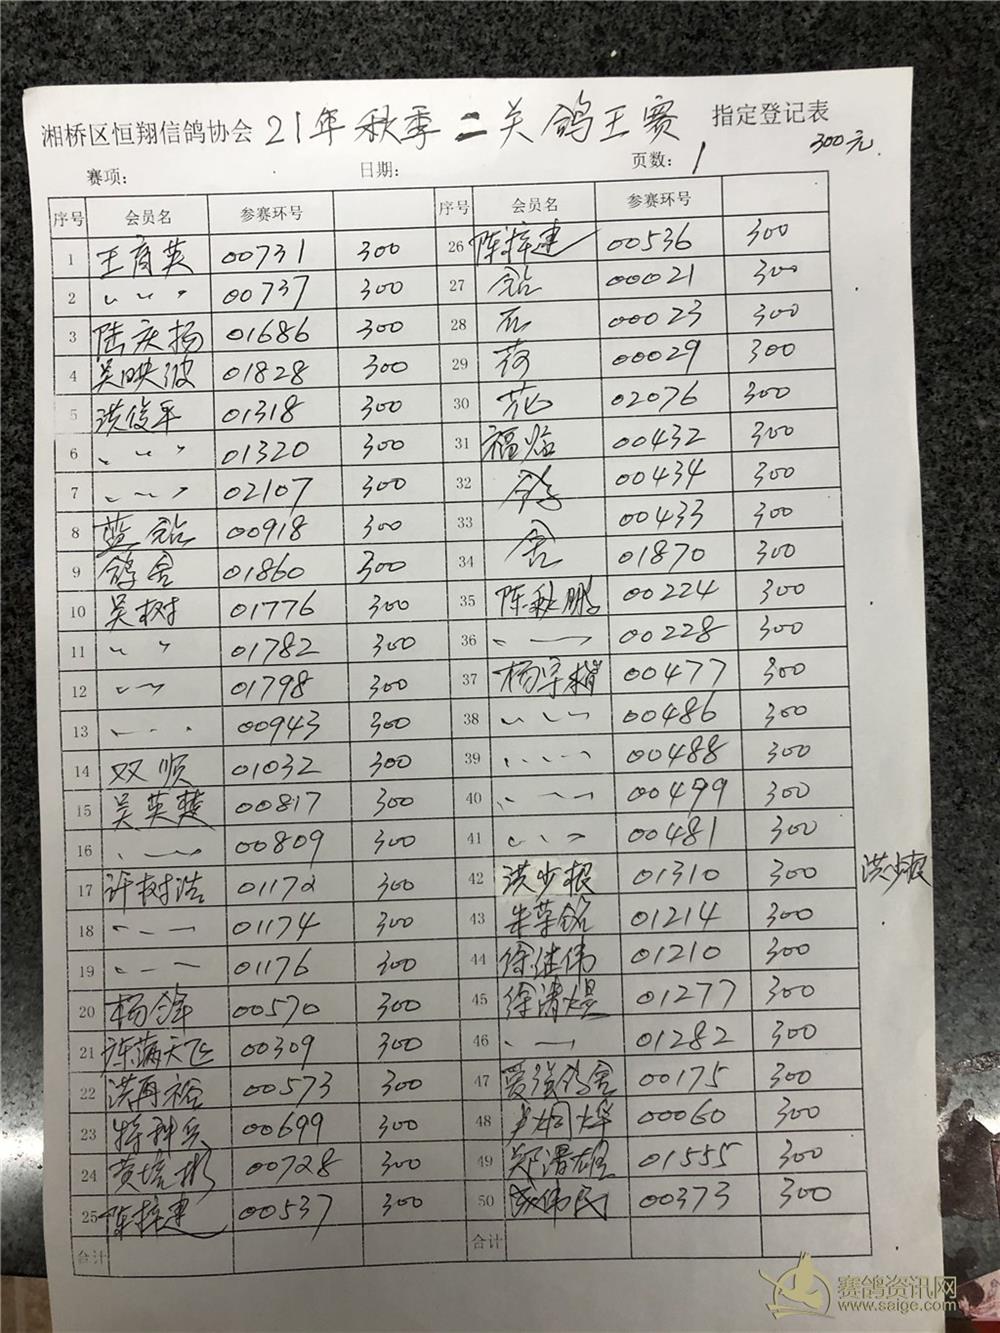 湘桥区恒翔信鸽协会 21年秋季二关鸽王赛 指定登记表
300元
赛项: 日期: 页数: 1
序号 会员名 参赛环号 序号 会员名 参赛环号
1 王育英 00731 300 26 陈梓建 00536 300
2 〃 〃 〃 00737 300 27 钻 00021 300
3 陆庆扬 01686 300 28 石 00023 300
4 吴映波 01828 300 29 荷 00029 300
5 洪俊平 01318 300 30 花 02076 300
6 〃 〃 〃 01320 300 31 福临 00432 300
7 〃 〃 〃 02107 300 32 鸽 00434 300
8 蓝钻 00918 300 33 00433 300
9 鸽舍 01860 300 34 舍 01870 300
10 吴树 01776 300 35 陈秋鹏 00224 300
11 〃 〃 01782 300 36 〃 — 00228 300
12 〃 〃 01798 300 37 杨宇楷 00477 300
13 〃 〃 〃 00943 300 38 〃 〃 〃 00486 300
14 双顺 01032 300 39 〃 〃 〃 00488 300
15 吴英楚 00817 300 40 〃 〃 〃 00499 300
16 〃 — 00809 300 41 〃 〃 〃 00481 300
17 许树浩 01172 300 42 洪少根 01310 300 洪少根
18 〃 — — 01174 300 43 朱荣铭 01214 300
19 〃 — — 01176 300 44 徐继伟 01210 300
20 杨 00570 300 45 徐清煜 01277 300
21 陈满天飞 00309 300 46 〃 — 01282 300
22 洪再裕 00573 300 47 爱强鸽舍 00175 300
23 特种兵 00699 300 48 卢炯烨 00060 300
24 黄培彬 00728 300 49 郑潜雄 01555 300
25 陈梓建 00537 300 50 伟民 00373 300
合计 合计
赛鸽资讯网
www.saige.com